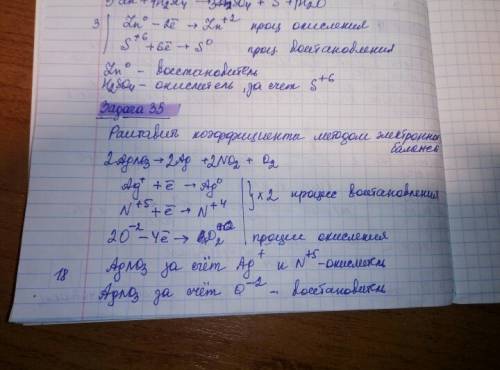 3 Zn⁰ - 2ē → Zn⁺² проц окисления
S⁺⁶ + 6ē → S⁰ проц востановления
Zn⁰ - восстановитель
H₂SO₄ - окислитель, за счет S⁺⁶
Задача 35
Раставить коэффициенты методом электронного баланса
2AgNO₃ → 2Ag + 2NO₂ + O₂
Ag⁺ + ē → Ag⁰
N⁺⁵ + ē → N⁺⁴ } ×2 процесс восстановления
2O⁻² - 4ē → O₂⁰ процесс окисления
AgNO₃ за счёт Ag⁺ и N⁺⁵ - окислитель
18
AgNO₃ за счёт O⁻² - восстановитель